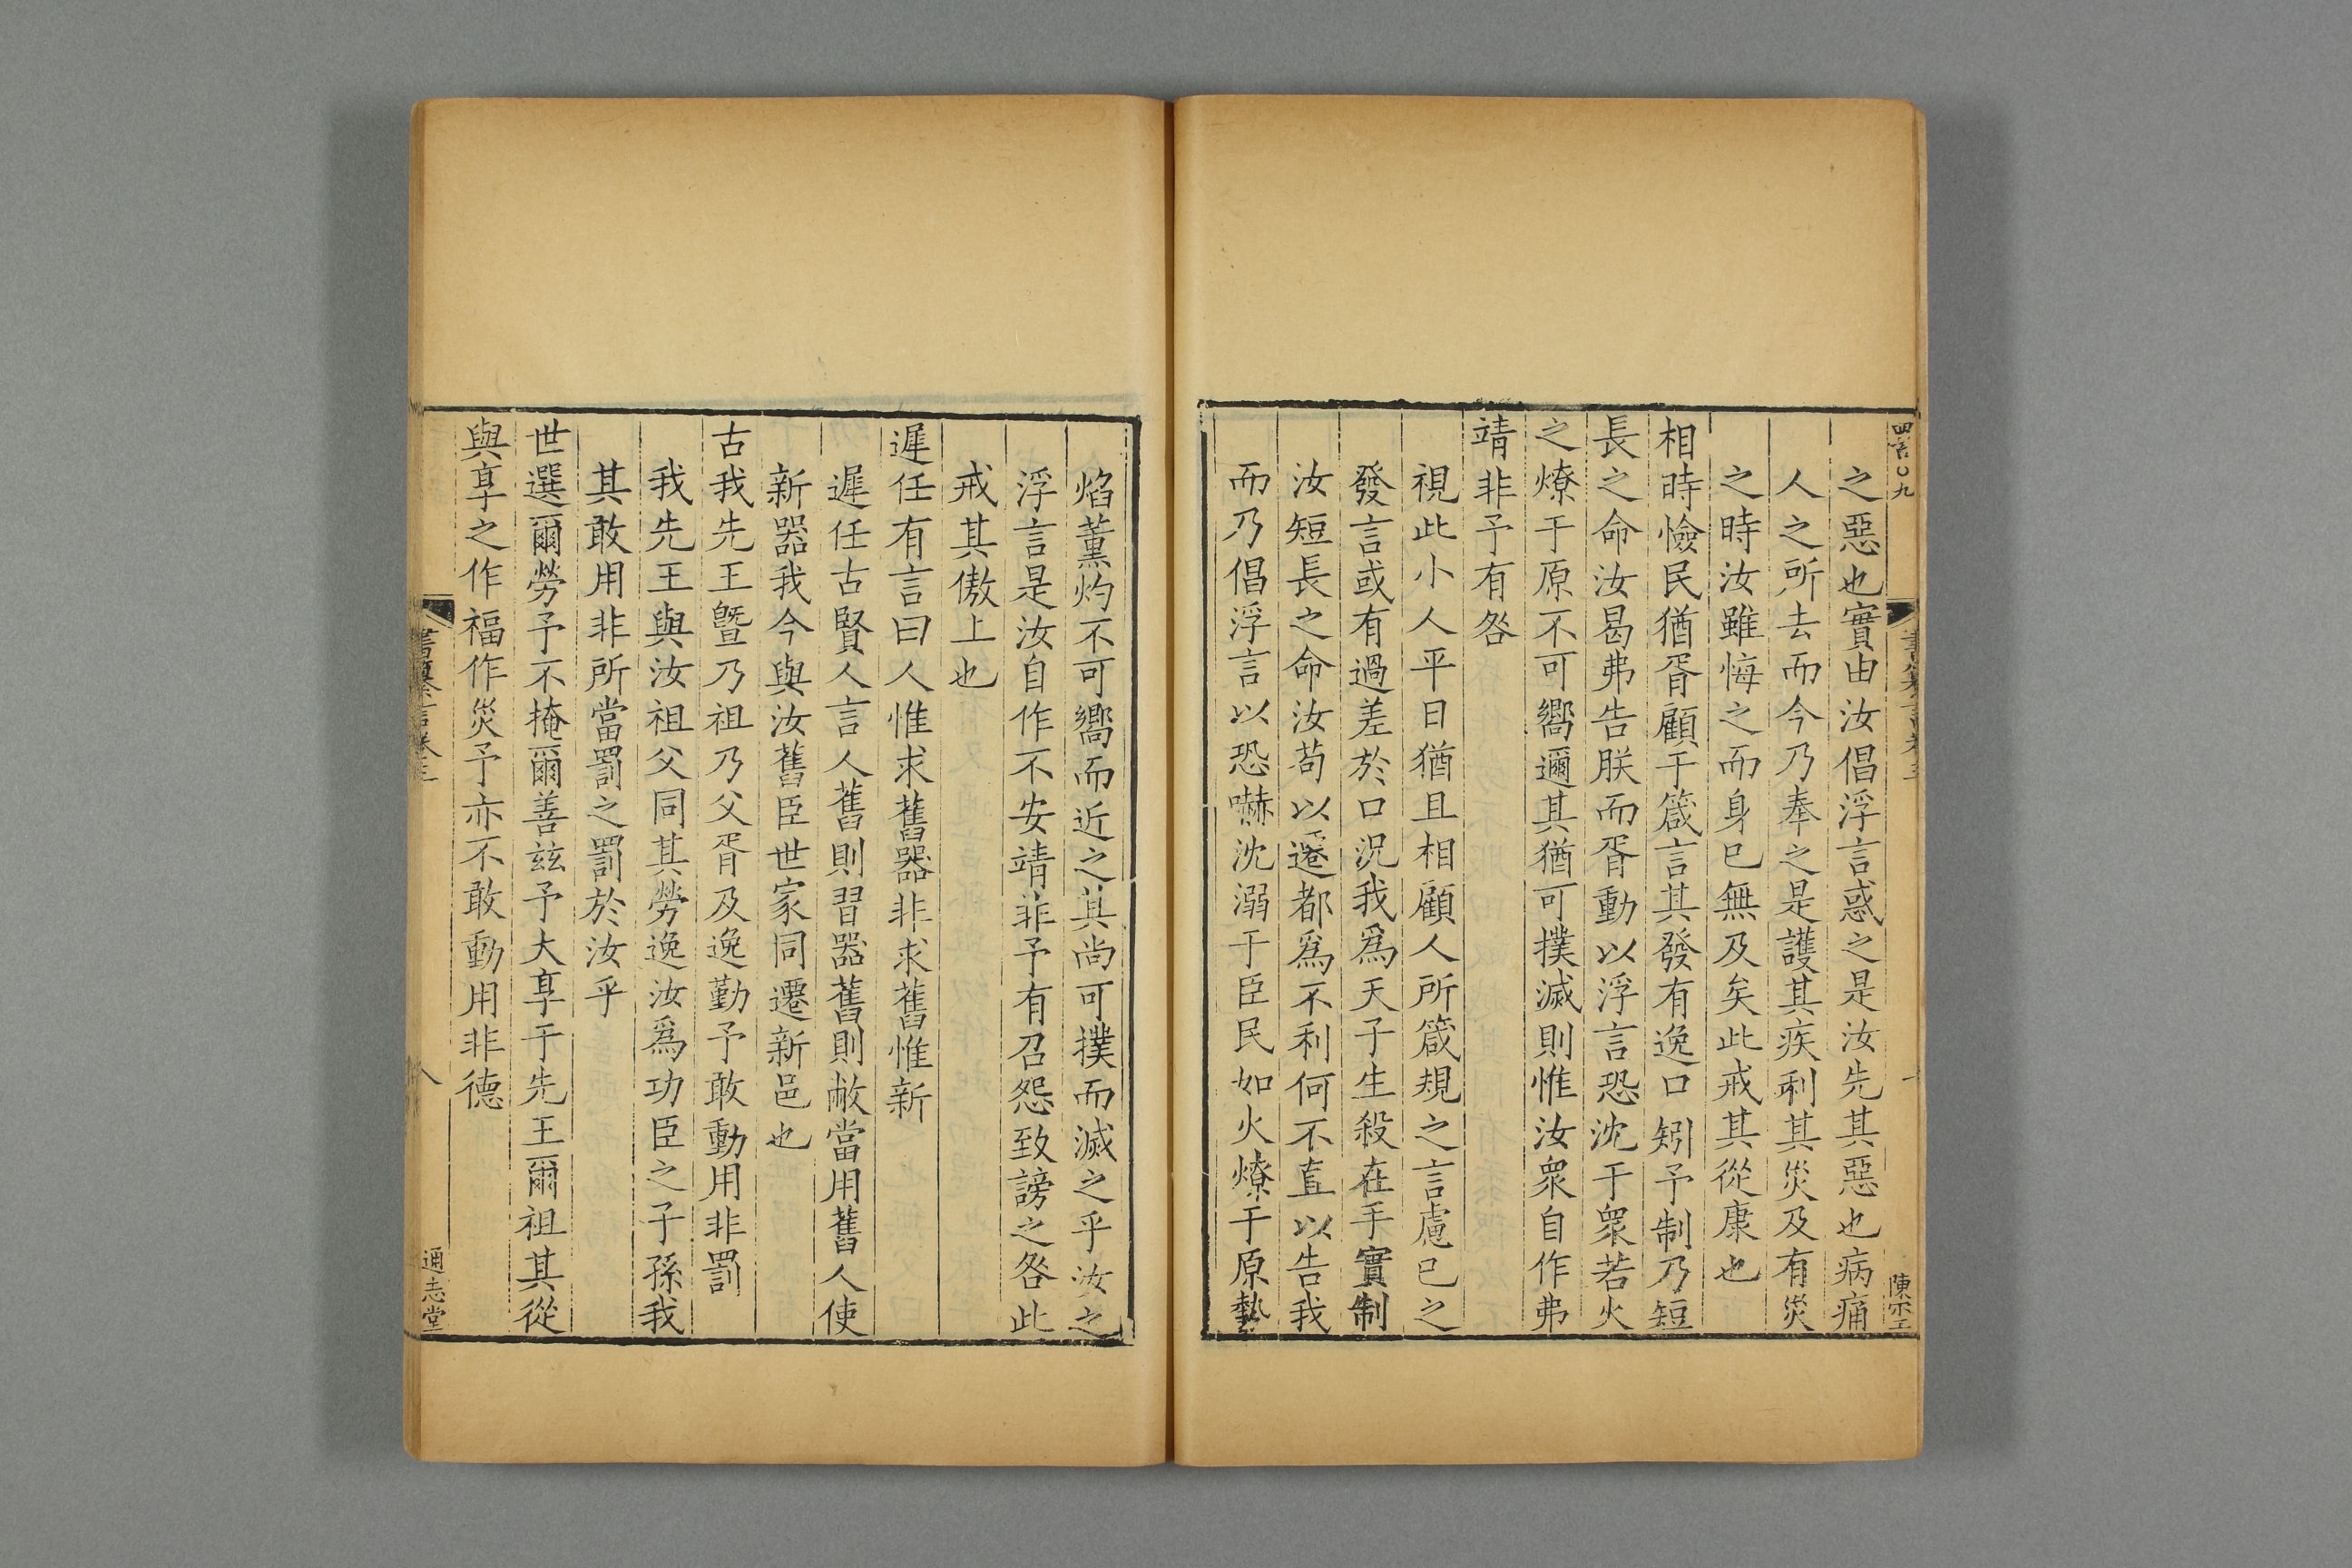 之惡也實由汝倡浮言惑之是汝先其惡也病痛
人之所去而今乃奉之是護其疾利其災及有災
之時汝雖悔之而身已無及矣此戒其從康也
相時憸民猶胥顧于箴言其發有逸口矧予制乃短
長之命汝曷弗告朕而胥動以浮言恐沈于衆若火
之燎于原不可嚮邇其猶可撲滅則惟汝衆自作弗
靖非予有咎
視此小人平日猶且相顧人所箴規之言慮已之
發言或有過差於口況我爲天子生殺在手實制
汝短長之命汝苟以遷都爲不利何不直以告我
而乃倡浮言以恐嚇沈溺于臣民如火燎于原埶
焰薰灼不可嚮而近之其尚可撲而滅之乎汝之
浮言是汝自作不安靖非予有召怨致謗之咎此
戒其傲上也
遲任有言曰人惟求舊器非求舊惟新
遲任古賢人言人舊則習器舊則敝當用舊人使
新器我今與汝舊臣世家同遷新邑也
古我先王曁乃祖乃父胥及逸勤予敢動用非罰
我先王與汝祖父同其勞逸汝爲功臣之子孫我
其敢用非所當罰之罰於汝乎
世選爾勞予不掩爾善玆予大享于先王爾祖其從
與享之作福作災予亦不敢動用非德
書纂言卷三
八
通志堂